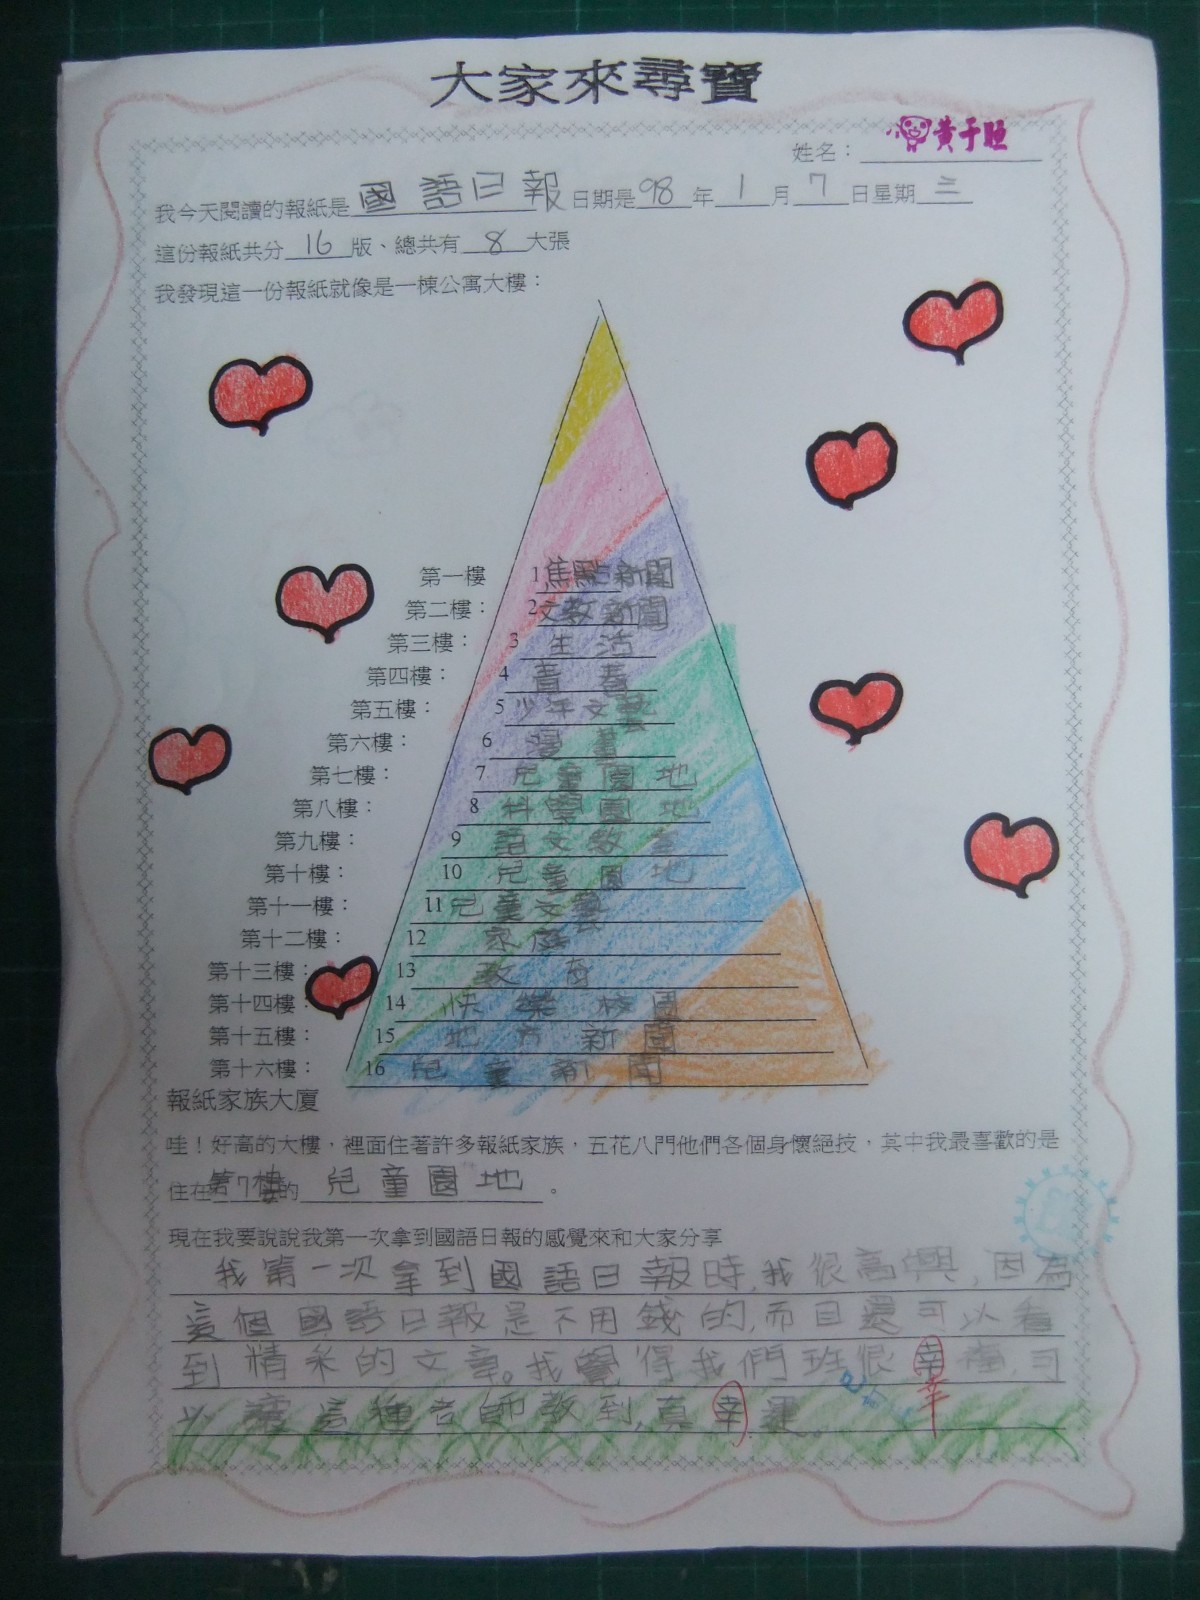 大家來尋寶
姓名：黃于恒
我今天閱讀的報紙是國語日報日期是98年1月7日星期三
這份報紙共分16版、總共有8大張
我發現這一份報紙就像是一棟公寓大樓：
第一樓 1焦點新聞
第二樓： 2文教新聞
第三樓： 3生活
第四樓： 4青春
第五樓： 5少年文藝
第六樓： 6漫畫
第七樓： 7兒童園地
第八樓： 8科學園地
第九樓： 9語文教室
第十樓： 10兒童園地
第十一樓： 11兒童文藝
第十二樓： 12家庭
第十三樓： 13教育
第十四樓： 14快樂校園
第十五樓： 15地方新聞
第十六樓： 16兒童新聞
報紙家族大廈
哇！好高的大樓，裡面住著許多報紙家族，五花八門他們各個身懷絕技，其中我最喜歡的是
住在第7樓的兒童園地。
現在我要說說我第一次拿到國語日報的感覺來和大家分享
我第一次拿到國語日報時,我很高興,因為
這個國語日報是不用錢的,而且還可以看
到精采的文章。我覺得我們班很幸福,可
以讓這種老師教到,真幸運。
幸